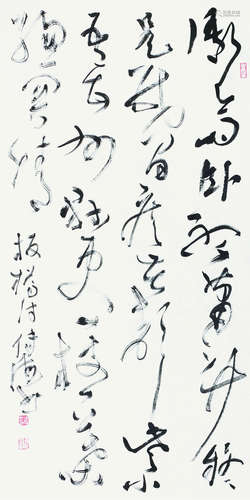 衙斋卧听萧萧竹疑
是民间疾苦声些小
吾曹州县吏一枝一叶
總関情
板橋诗